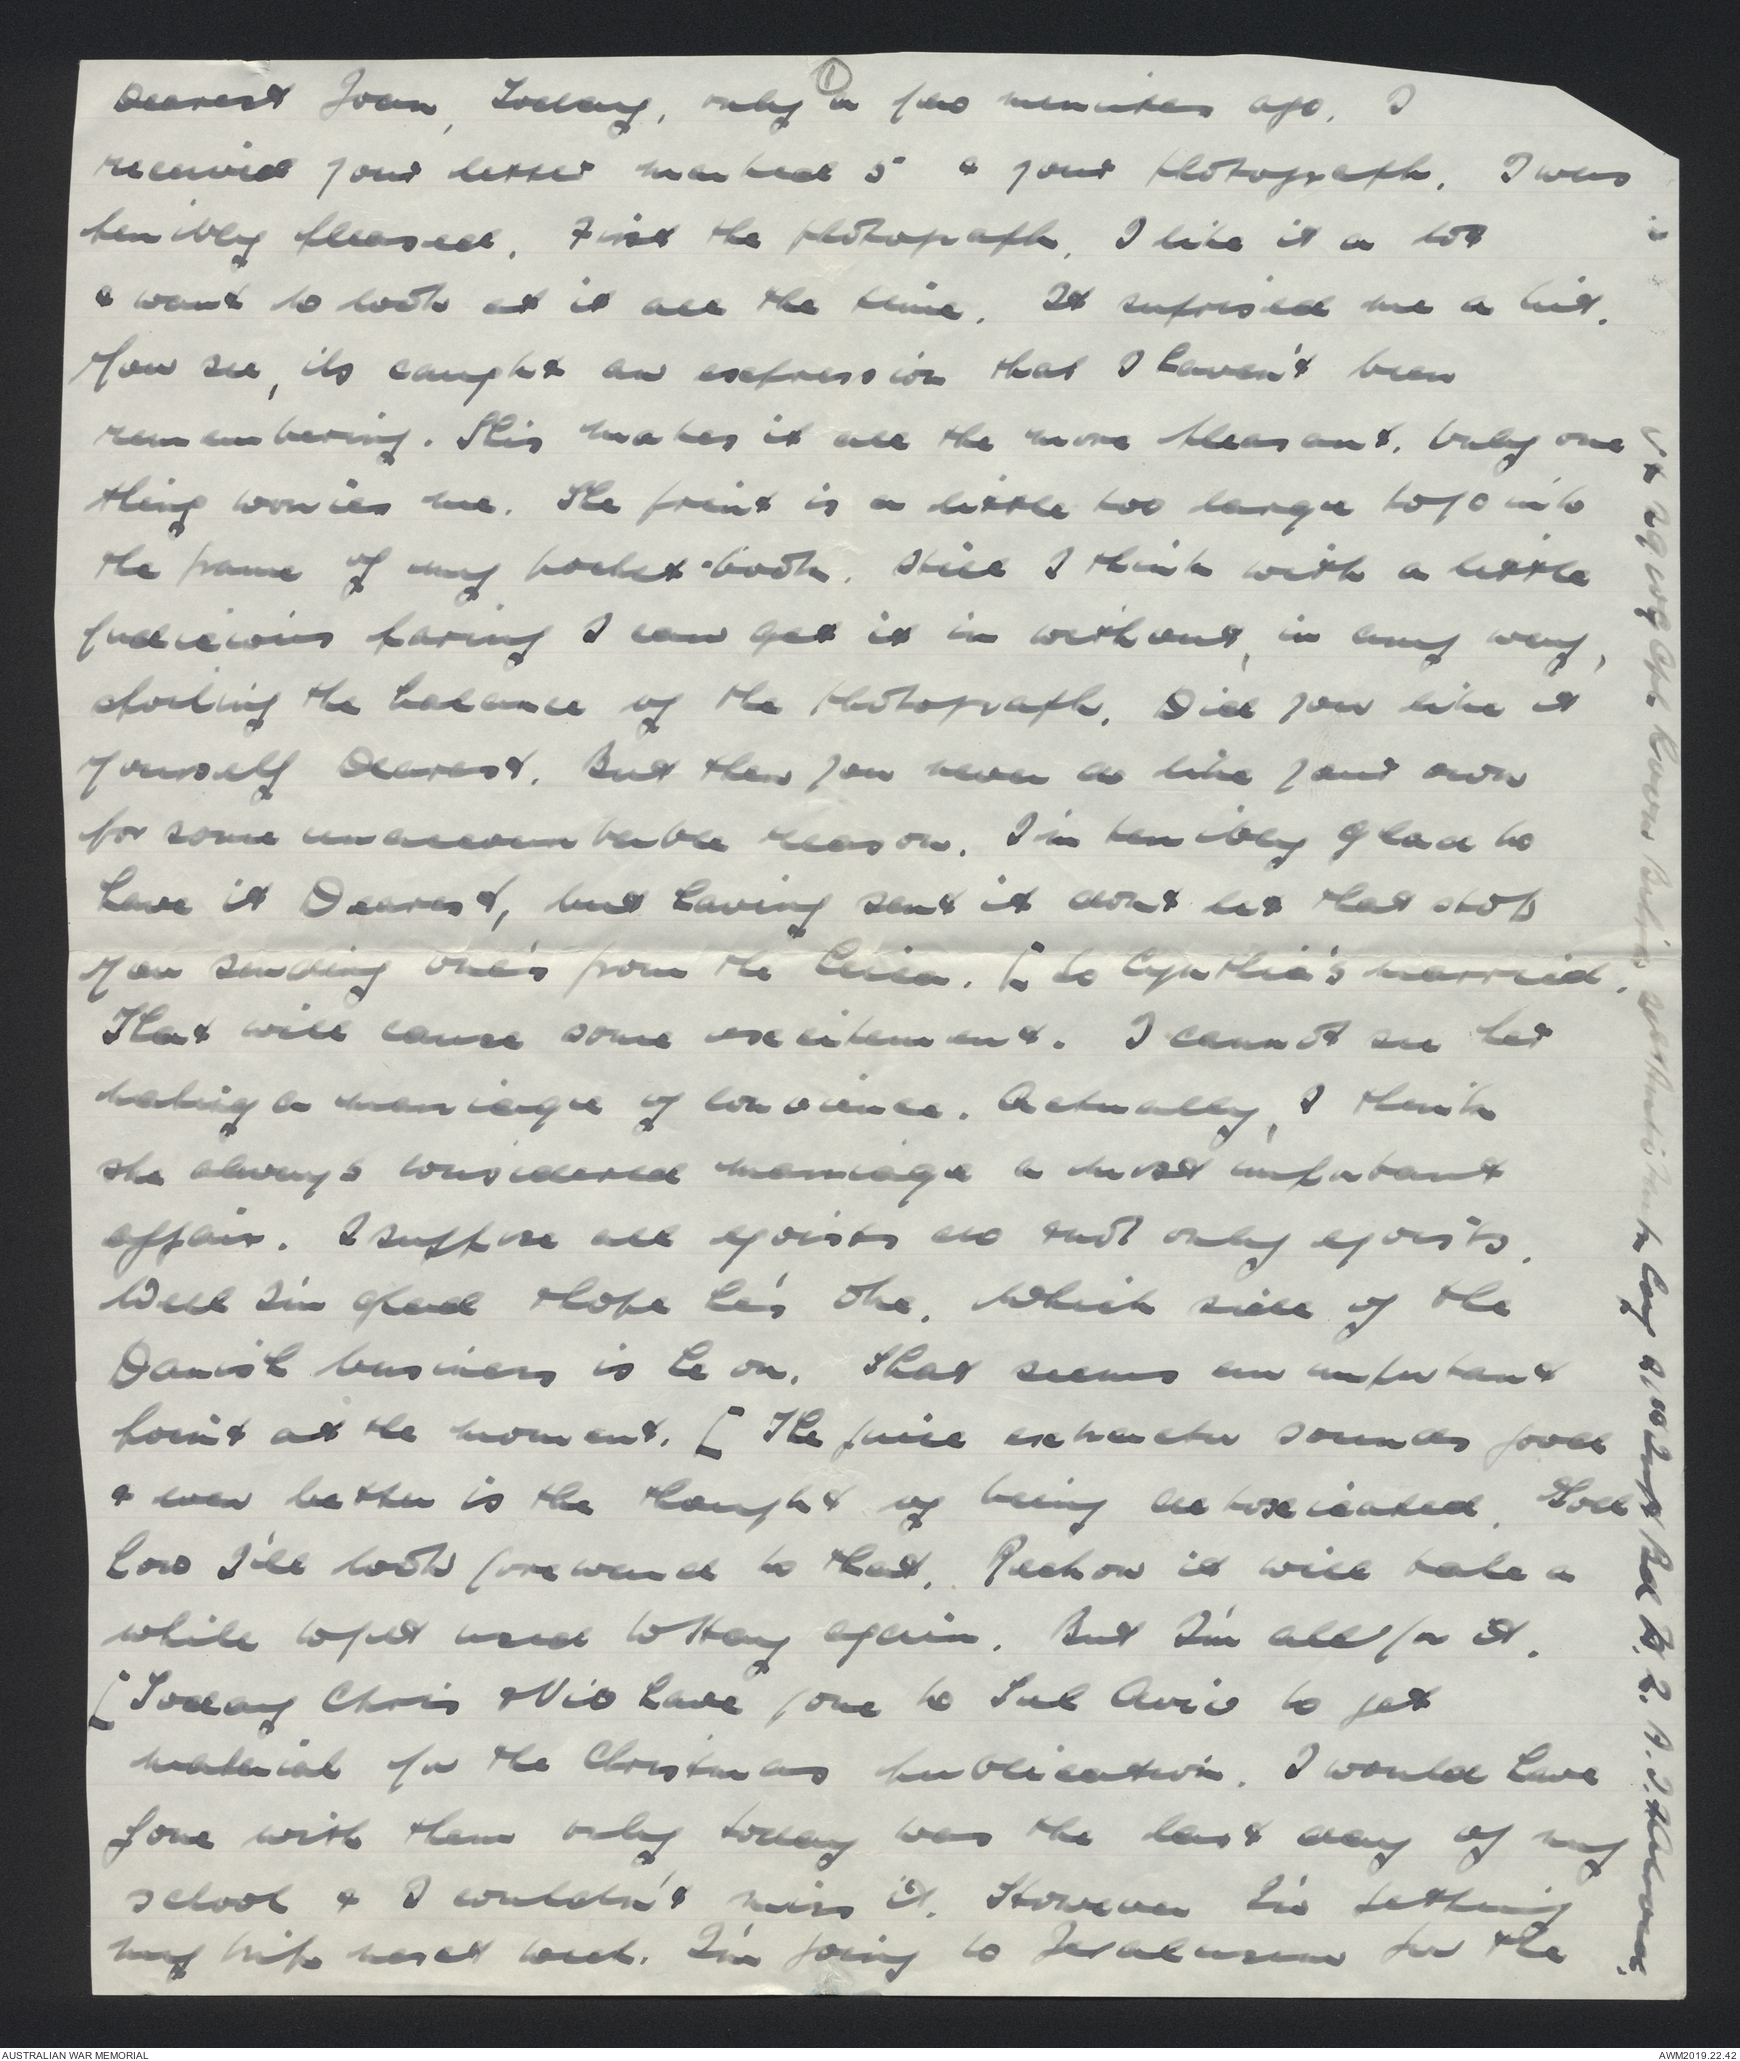 ①
Dearest Joan, Today, only a few minutes ago, I
received your letter marked 5 & your photograph. I was
terribly pleased. First the photograph. I like it a lot
& want to look at it all the time. It suprised me a bit.
You see, its caught an expression that I haven't been
remembering. This makes it all the more pleasant. Only one
thing worries me. The print is a little too large to go into
the frame of my pocket-book. Still I think with a little
judicious paring I can get it in without, in any way,
spoiling the balance of the photograph. Did you like it
yourself Dearest. But then you never do like your own
for some unaccountable reason. I'm terribly glad to
have it Dearest, but having sent it dont let that stop
you sending one's from the Leica. [ So Cynthia's married.
That will cause some excitement. I cannot see her
making a marriage of convience. Actually, I think
she always considered marriage a most important
affair. I suppose all egoists do & not only egoists.
Well I'm glad & hope he's ok. Which side of the
Danish business is he on. That seems an important
point at the moment. [ The juice extractor sounds good
& even better is the thought of being detoxicated. God
how I'll look foreward to that. Reckon it will take a
while to get used to Hay again. But I'm all for it.
[ Today Chris & Vic have gone to Tel Aviv to get
material for the Christmas publication. I would have
gone with them only today was the last day of my
school & I couldn't miss it. However I'm getting
my trip next week. I'm going to Jerulusem for the
AUSTRALIAN WAR MEMORIAL
AWM2019.22.42